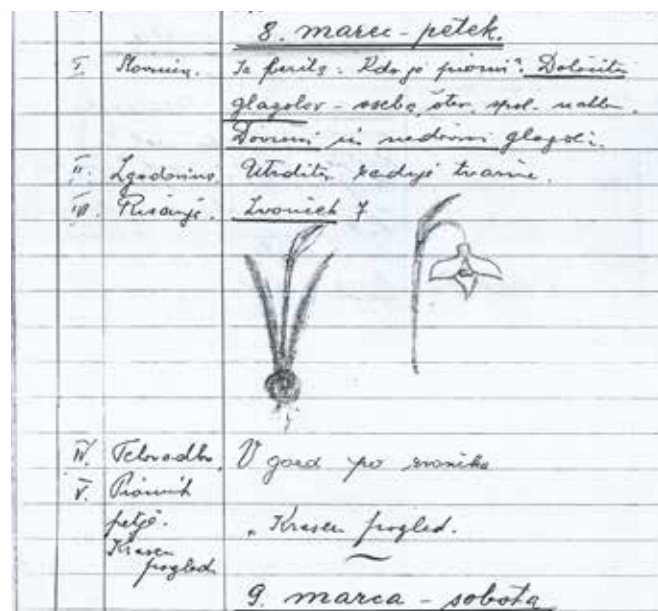 8. marec - petek.
I. Slovnica. Iz berila. Kdo je priden? Določiti
glagolov - oseba, štev, spol. naklon.
Dovršni in nedovršni glagoli.
II. Zgodovina. Utrditi zadnje tvarine.
III. Risanje. Zvonček
IV. Telovadba. V gozd po zvončke
V.
petje. „Krasen pogled.
Krasen
pogled
9. marca - sobota